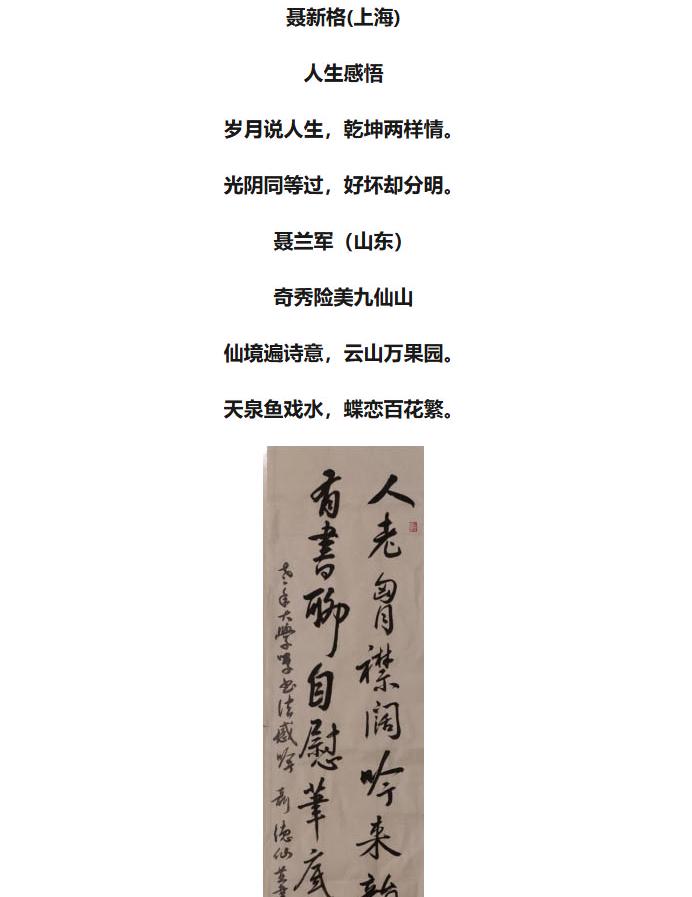 聂新格(上海)
人生感悟
岁月说人生，乾坤两样情。
光阴同等过，好坏却分明。
聂兰军（山东）
奇秀险美九仙山
仙境遍诗意，云山万果园。
天泉鱼戏水，蝶恋百花繁。
人老胷襟阔吟来
有書聊自慰筆底
老年大學學书法感吟 聶德仙